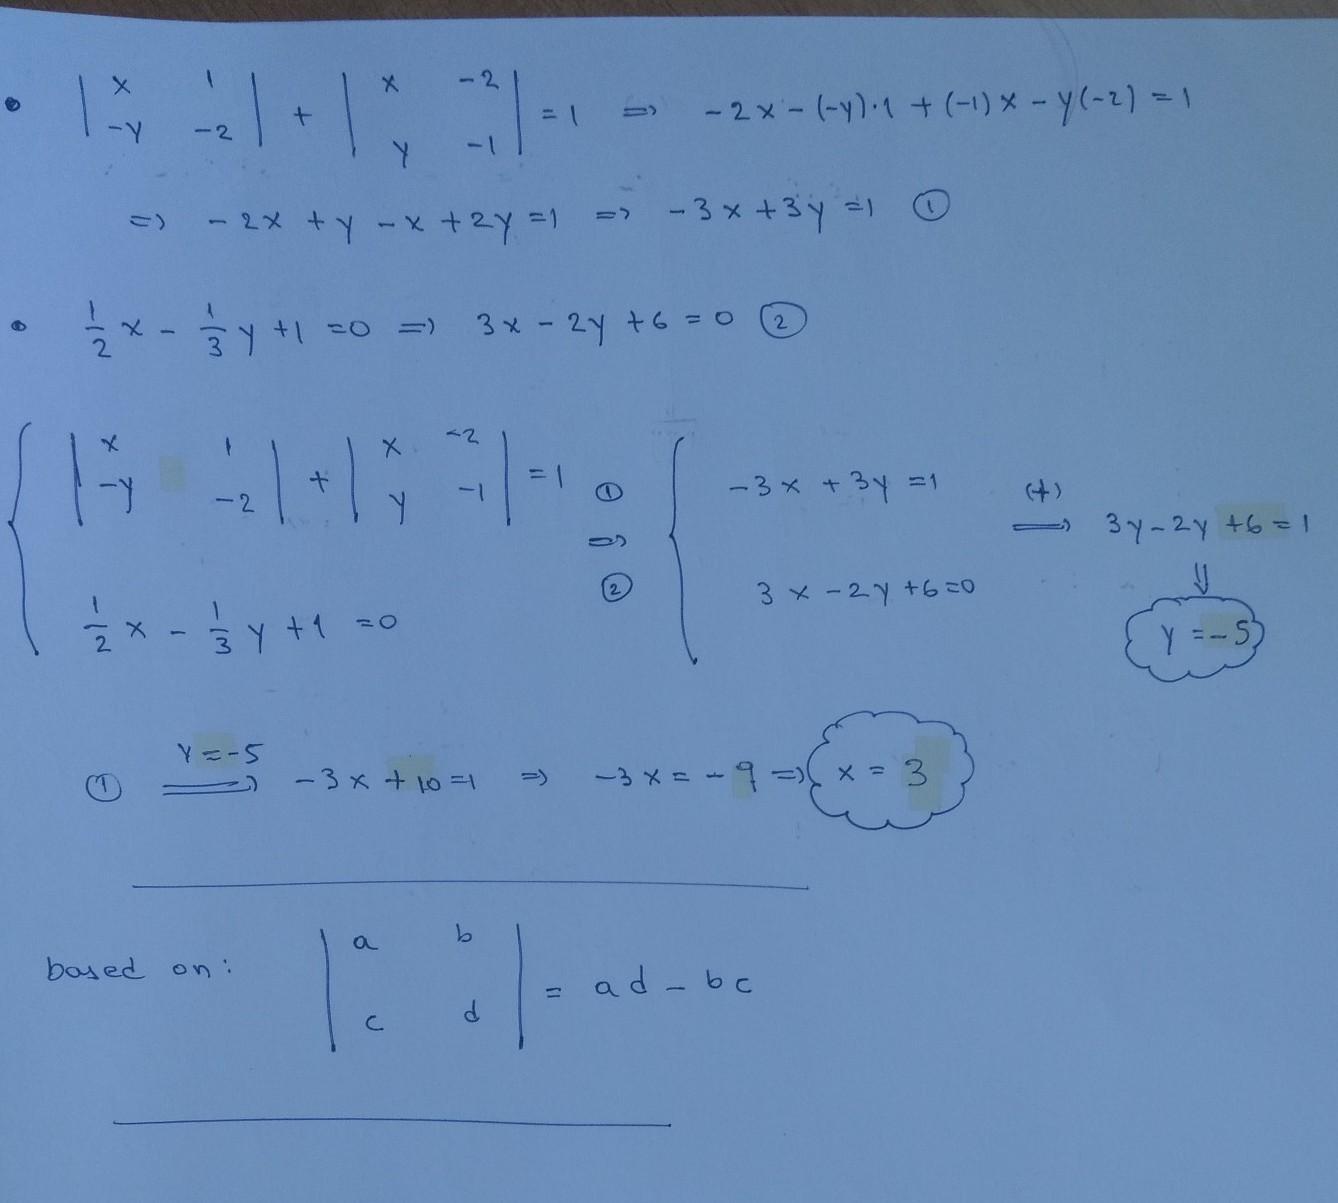 • | x 1 ; -y -2 | + | x -2 ; y -1 | = 1 => -2x - (-y)·1 + (-1)x - y(-2) = 1
=> -2x + y - x + 2y = 1 => -3x + 3y = 1 ①
• 1/2 x - 1/3 y + 1 = 0 => 3x - 2y + 6 = 0 ②
{ | x 1 ; -y -2 | + | x -2 ; y -1 | = 1 ① => ② { -3x + 3y = 1 (+) => 3y - 2y + 6 = 1
1/2 x - 1/3 y + 1 = 0 3x - 2y + 6 = 0 ⇓ y = -5
① y = -5 => -3x + 10 = 1 => -3x = -9 => x = 3
based on: | a b ; c d | = ad - bc